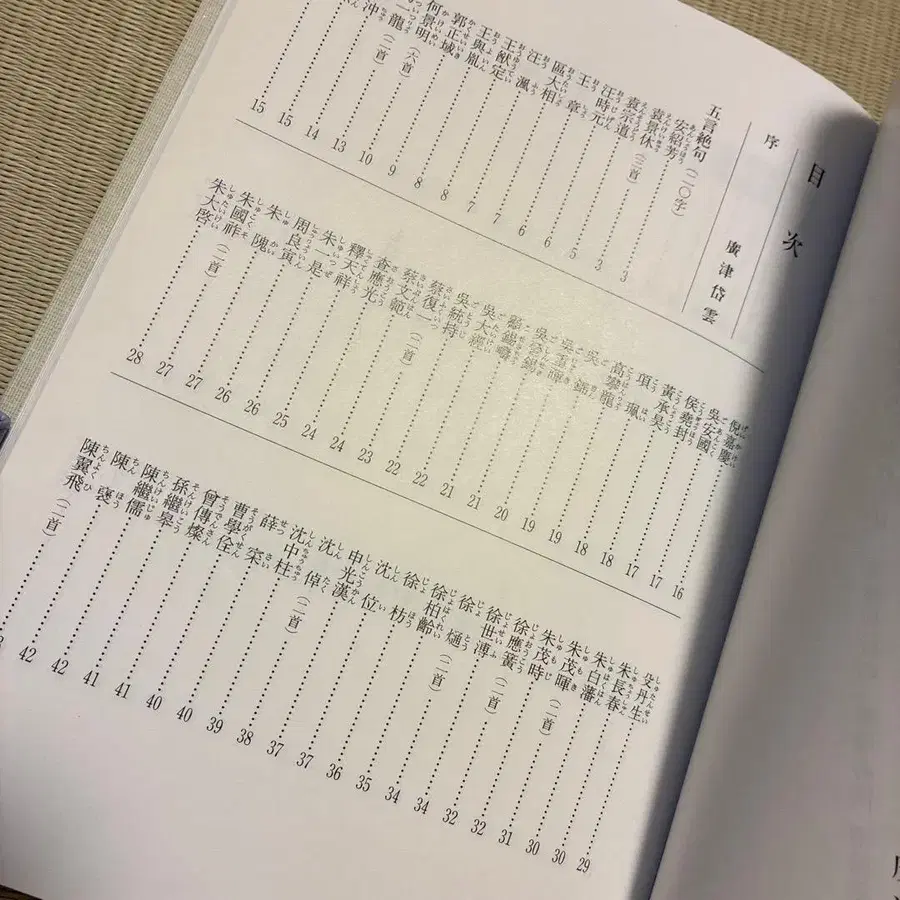 目次
序　廣津岱雲
五言絶句（二〇字）
安紹芳 3
袁景休（二首） 3
袁宗道 5
汪時元 6
王　章 6
區大相 7
汪　渢 7
王猷定 8
王與胤 8
郭正域 9
何景明（六首） 10
一龍（二首） 13
沖 14
15
15
倪嘉慶 16
吳安國 17
侯堯封 17
黃承昊 18
項　珮 18
高攀龍 19
吳 19
吳 20
吳 21
錫疇 21
吳大經 22
吳統持 22
蔡復一（二首） 23
蔡文範 24
查應光 24
釋大祥 25
朱　是 26
周良寅 26
朱　隗 27
朱國祚（二首） 27
朱大啓 28
殳丹生 29
朱長春 30
朱白藩 30
朱茂暉（二首） 31
朱茂時 32
徐應簧（二首） 32
徐世溥 34
徐　熥（二首） 34
徐柏齡 35
徐　枋 36
沈　位 37
申光漢 37
沈　倬（二首） 38
沈中柱 39
薛　寀 40
曹學佺 40
曾傳燦 41
孫繼皋 41
陳繼儒 42
陳　裦 42
陳翼飛（二首）